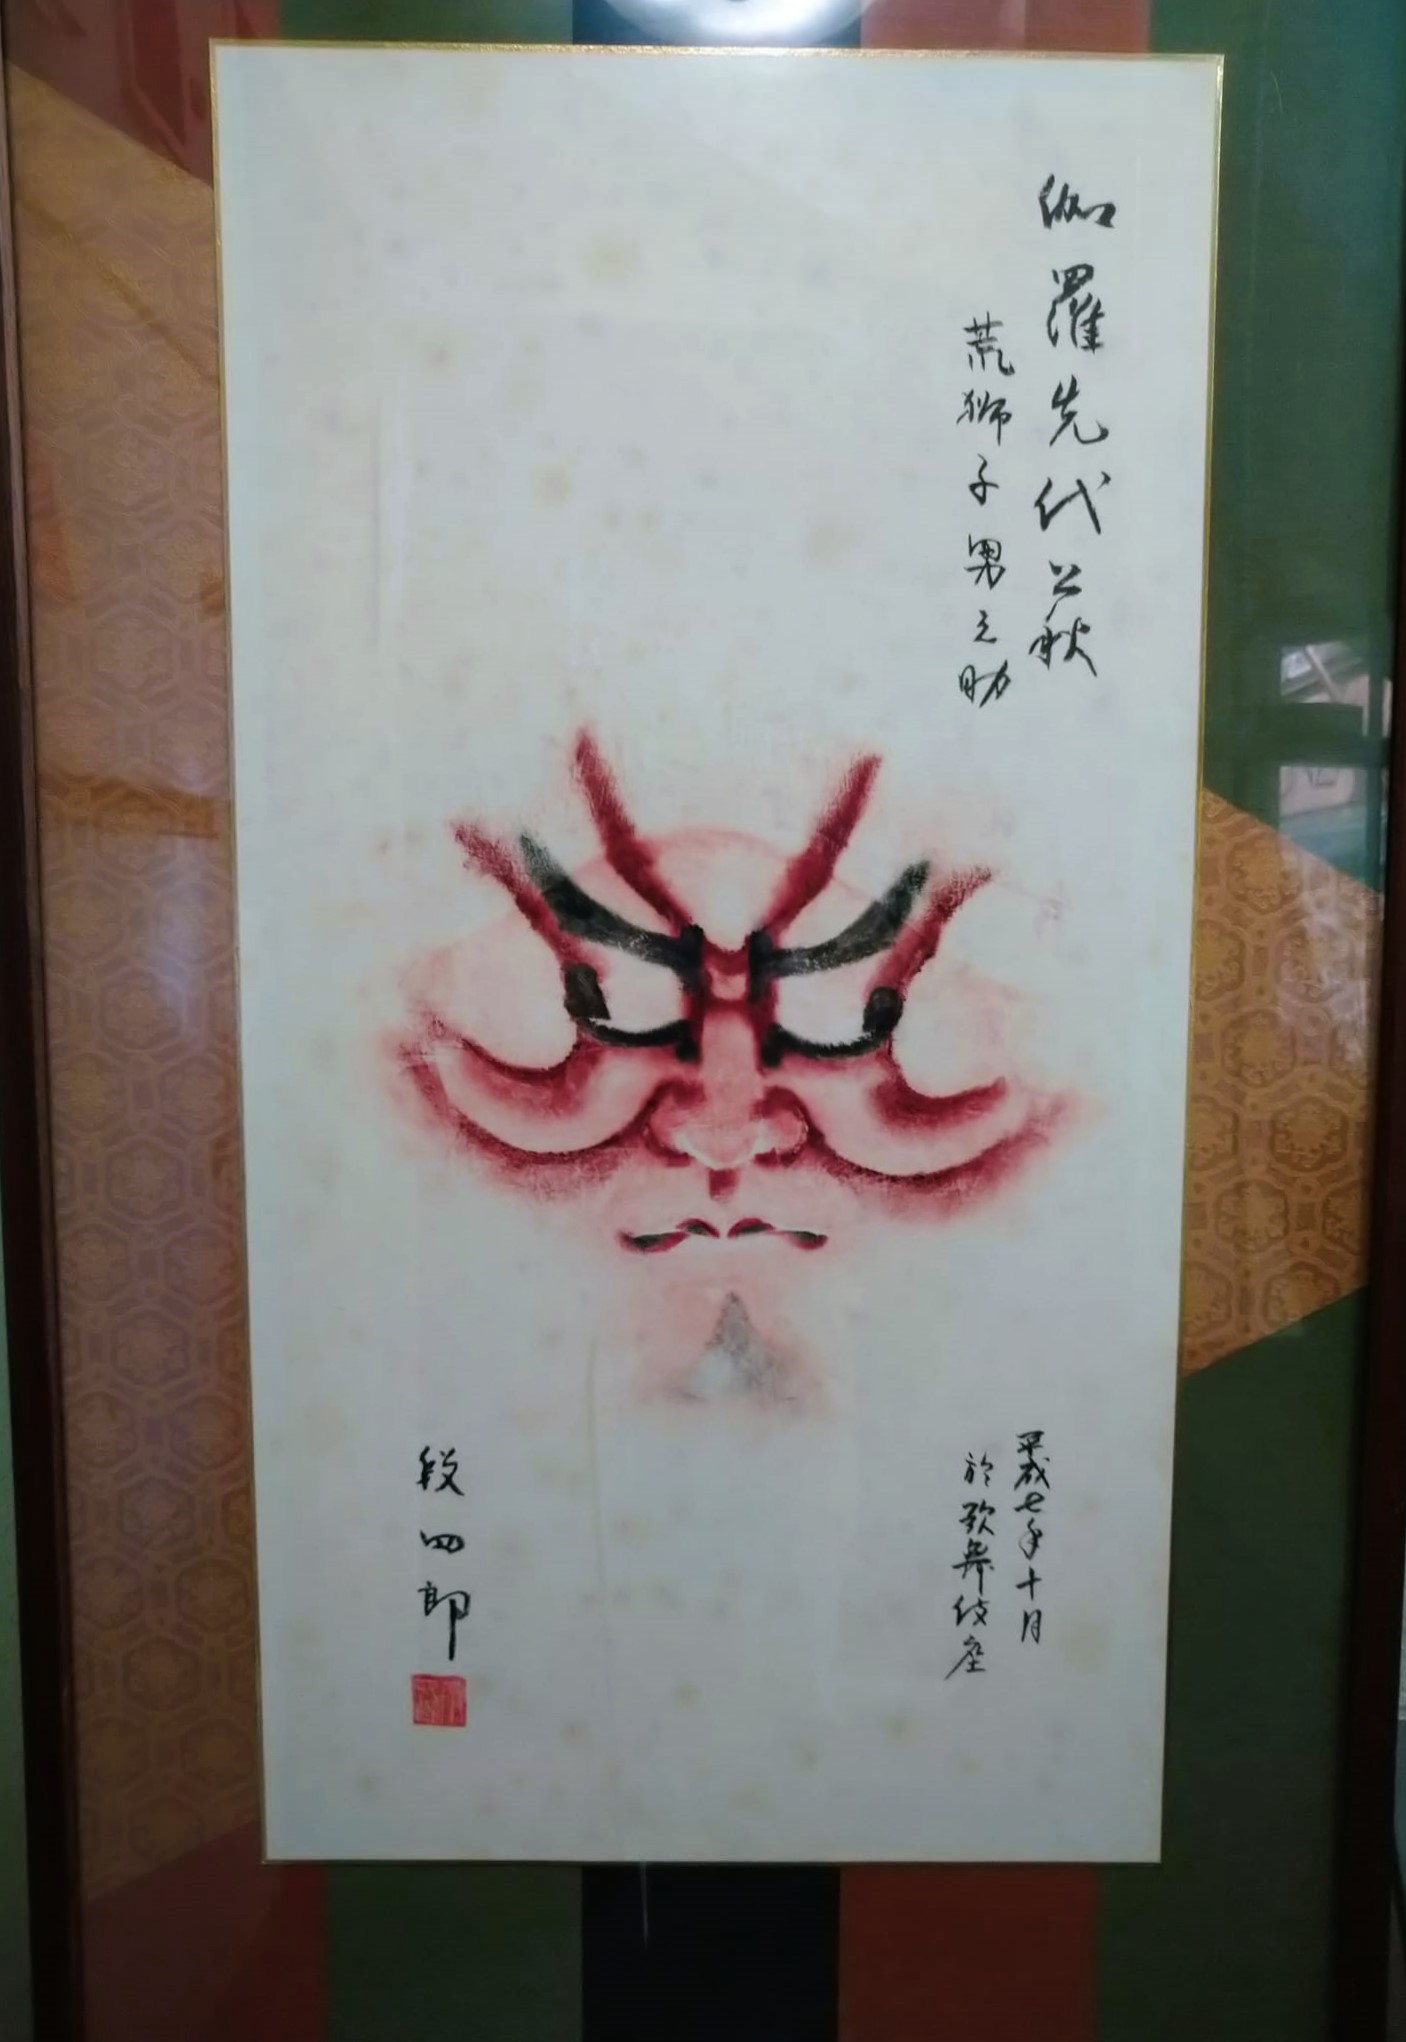 伽羅先代萩
荒獅子男之助
平成七年十月
於歌舞伎座
段四郎